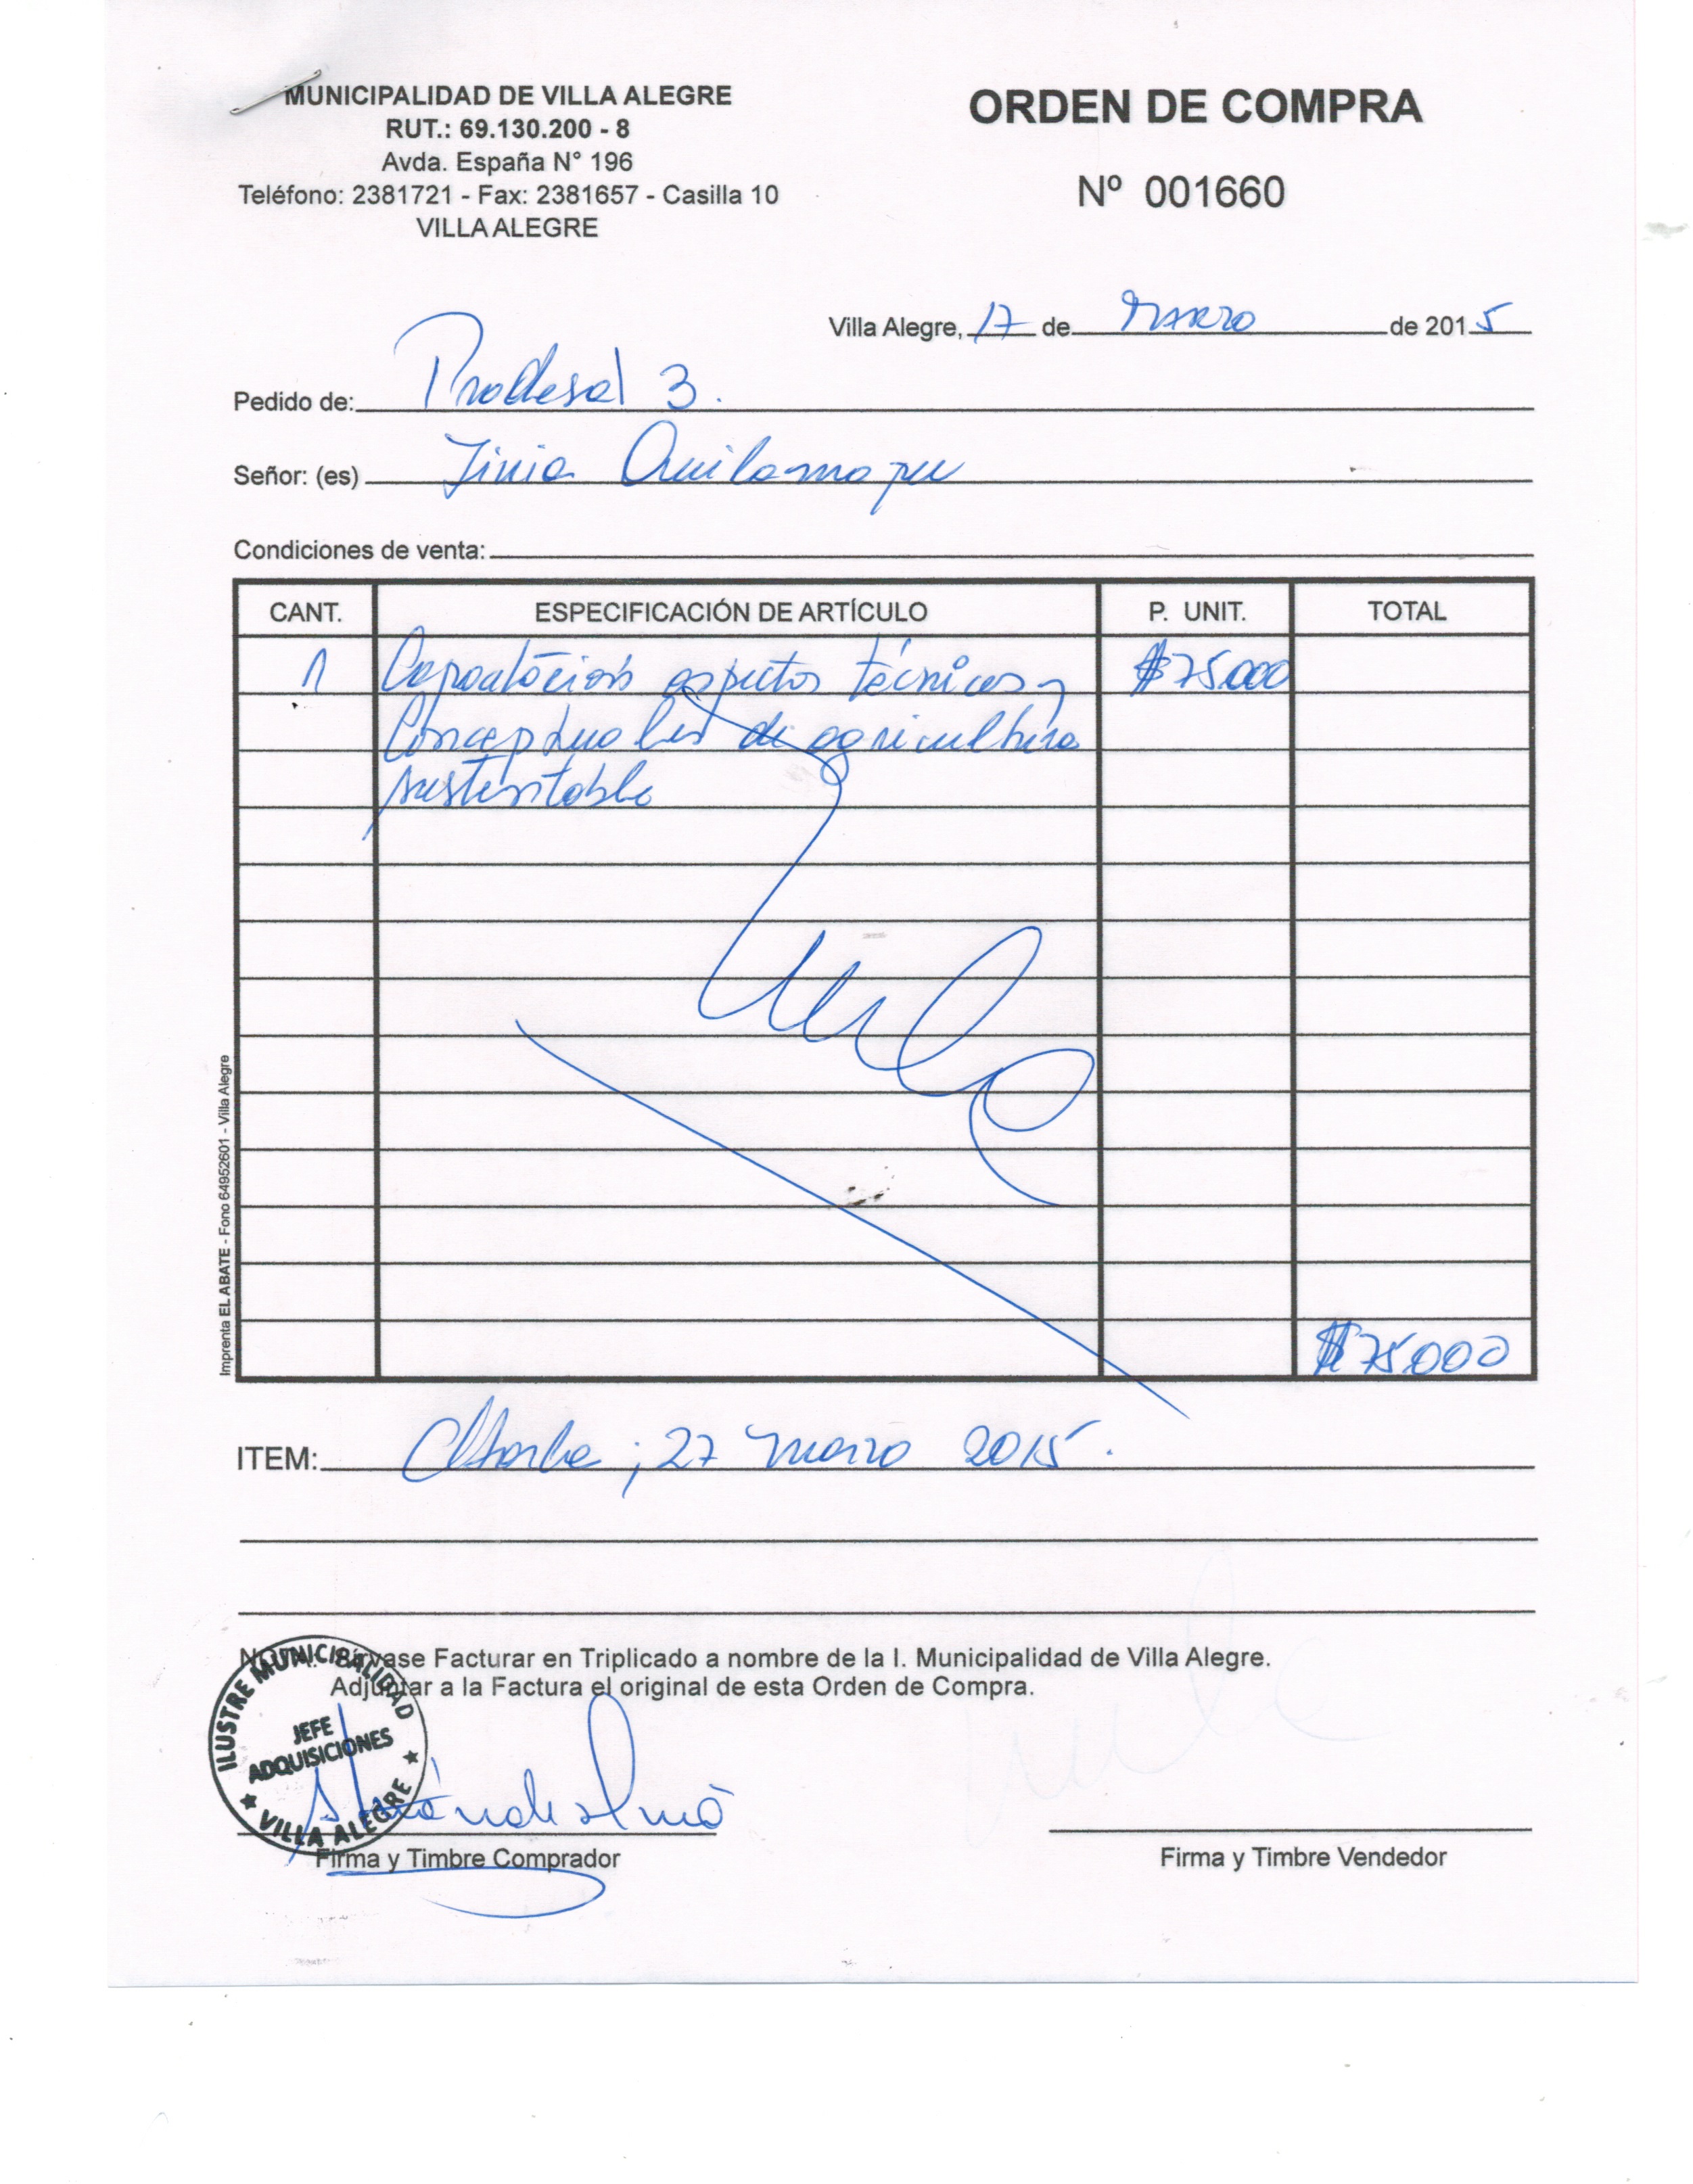 MUNICIPALIDAD DE VILLA ALEGRE
RUT.: 69.130.200 - 8
Avda. España N° 196
Teléfono: 2381721 - Fax: 2381657 - Casilla 10
VILLA ALEGRE
ORDEN DE COMPRA
Nº 001660
Villa Alegre, 17 de Marzo de 2015
Pedido de: Prodesal 3.
Señor: (es) Jinia Quilamapu
Condiciones de venta:
CANT. ESPECIFICACIÓN DE ARTÍCULO P. UNIT. TOTAL
1 Capacitación aspectos técnicos y $75.000
Conceptuales de agricultura
sustentable
$75.000
Imprenta EL ABATE - Fono 64952601 - Villa Alegre
ITEM: ; 27 marzo 2015.
NOTA: Sírvase Facturar en Triplicado a nombre de la I. Municipalidad de Villa Alegre.
Adjuntar a la Factura el original de esta Orden de Compra.
ILUSTRE MUNICIPALIDAD
JEFE
ADQUISICIONES
VILLA ALEGRE
Firma y Timbre Comprador
Firma y Timbre Vendedor